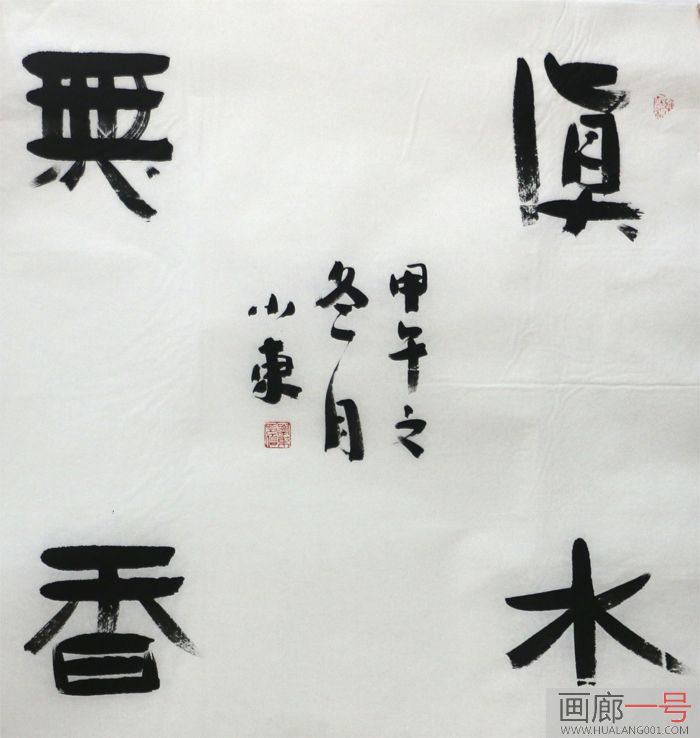 真水
無香
甲午之
冬月
小東
画廊一号
WWW.HUALANG001.COM